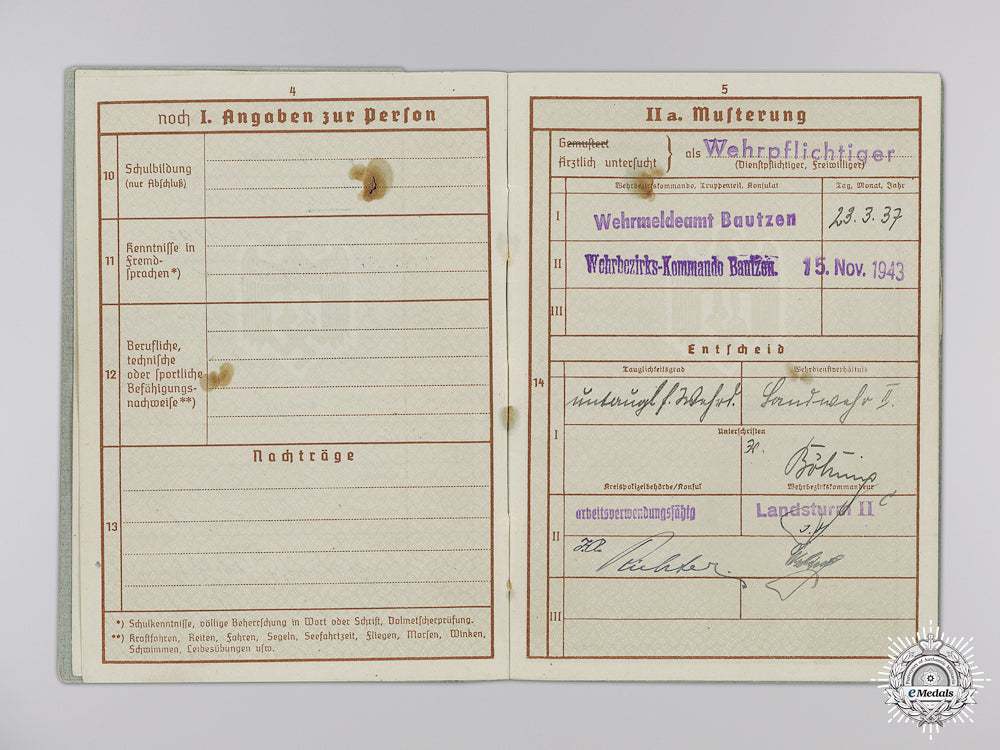 4
noch I. Angaben zur Person
10
Schulbildung
(nur Abschluß)
11
Kenntnisse in
Fremd-
sprachen*)
12
Berufliche,
technische
oder sportliche
Befähigungs-
nachweise**)
Nachträge
13
*) Schulkenntnisse, völlige Beherrschung in Wort oder Schrift, Dolmetscherprüfung.
**) Kraftfahren, Reiten, Fahren, Segeln, Seefahrtzeit, Fliegen, Morsen, Winken,
Schwimmen, Leibesübungen usw.
5
IIa. Musterung
Gemustert
Ärztlich untersucht } als Wehrpflichtiger
(Dienstpflichtiger, Freiwilliger)
Wehrbezirkskommando, Truppenteil, Konsulat Tag, Monat, Jahr
I Wehrmeldeamt Bautzen 23.3.37
II Wehrbezirks-Kommando Bautzen. 15. Nov. 1943
III
Entscheid
14
Tauglichkeitsgrad Wehrdienstverhältnis
untaugl. f. Wehrd. Landwehr II.
I
Unterschriften
Böhmig
Kreispolizeibehörde/Konsul Wehrbezirkskommandeur
II
arbeitsverwendungsfähig Landsturm II
Richter.
III
eMedals